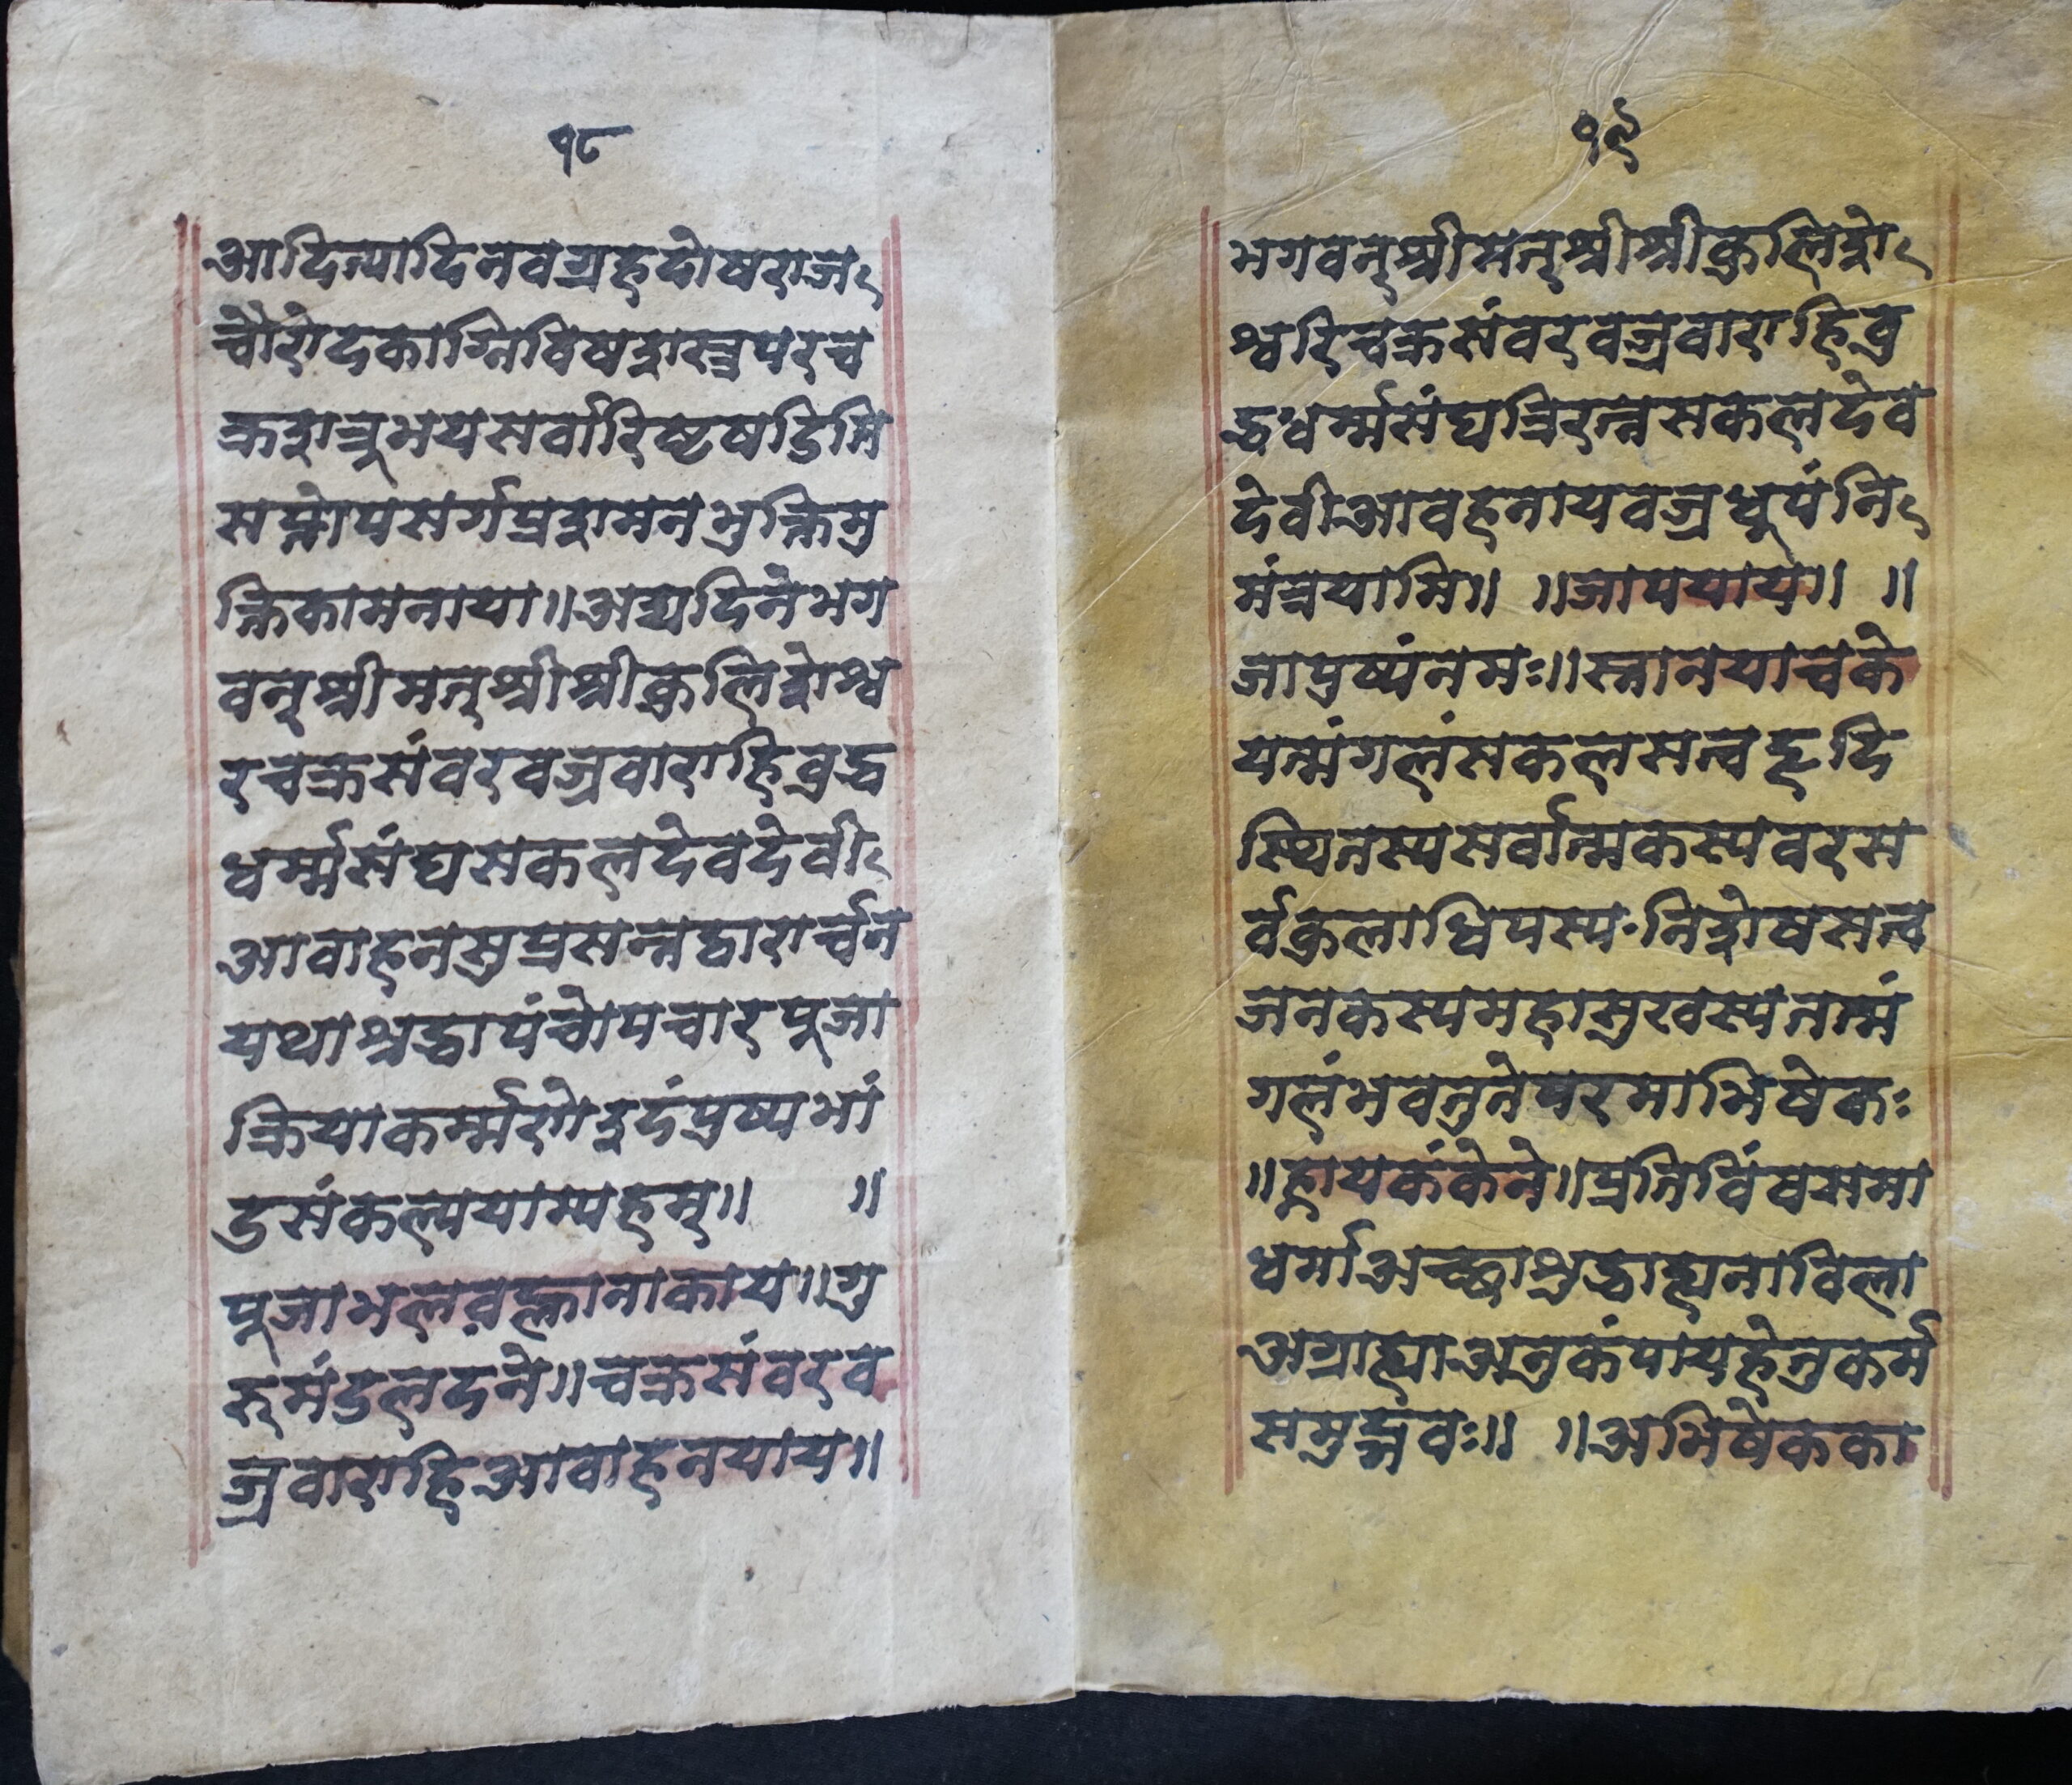 १८
आदित्यादिनवग्रहदोषराज
चौरोदकाग्निविषशस्त्रपरच
क्रशत्रुभयसर्वारिष्टषडिमि
सप्तोपसर्गप्रशमनभुक्तिमु
क्तिकामनाया॥अद्यदिनेभग
वन्श्रीमन्श्रीश्रीकुलिशेश्व
रचक्रसंवरवज्रवाराहिबुद्ध
धर्म्मसंघसकलदेवदेवी
आवाहनसुप्रसन्नद्वारार्च्चन
यथाश्रद्धापंचोपचारपूजा
क्रियाकर्म्मणेइदंपुष्पभां
डसंकल्पयाम्यहम्॥ ॥
पूजाभलवह्लानाकाय॥गु
रुमंडलदने॥चक्रसंवरव
ज्रवाराहिआवाहनयाय॥
१९
भगवन्श्रीमन्श्रीश्रीकुलिशे
श्वरिचक्रसंवरवज्रवाराहिबु
द्धधर्म्मसंघत्रिरत्नसकलदेव
देवीआवहनायवज्रधूपंनि
मंत्रयामि॥ ॥जापयाय॥ ॥
जापुष्पंनमः॥स्नानयाचके
यन्मंगलंसकलसत्वहृदि
स्थितस्यसर्वात्मकस्यवरस
र्वकुलाधिपस्यनिशेषसत्व
जनकस्यमहासुखस्यतन्मं
गलंभवतुतेपरमाभिषेकः
॥ह्नायकंकेने॥प्रतिविंवसमा
धर्माअच्छाश्रद्धाह्यनाविला
अग्राह्याअनुकंपायहेतुकर्म
समुद्भवः॥ ॥अभिषेकका